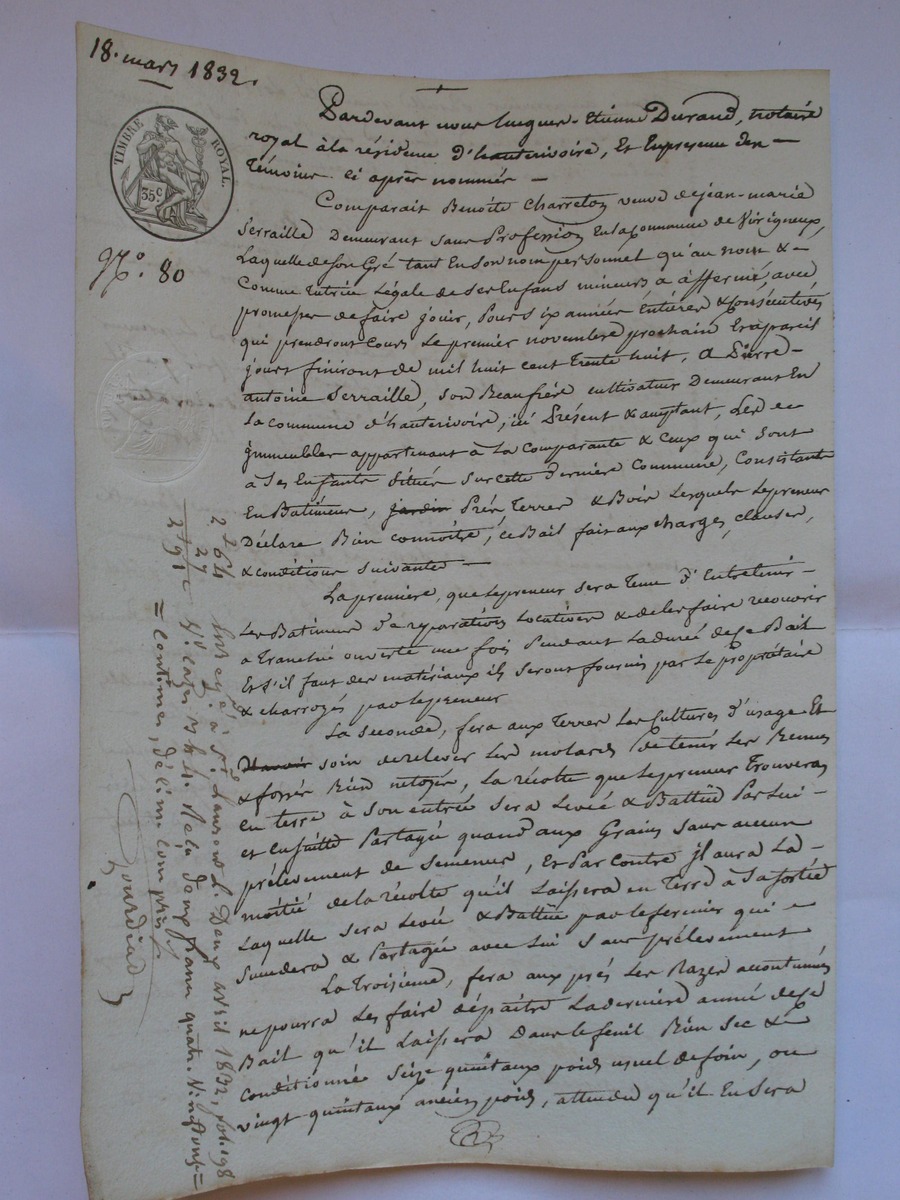 18. mars 1832.
TIMBRE ROYAL.
35 c.
N.º 80
Pardevant nous hugues-Etienne Durand, notaire
royal à la résidence d'hauterivoire, Et En presence des
Témoins ci après nommés
Comparait Benoîte Charreton veuve de jean-marie
Serraille Demeurant sans Profession En la Commune de Virigneux,
Laquelle de son Gré tant En son nom personnel qu'au nom &
Comme tutrice Légale de ses Enfans mineurs a affermé, avec
promesse de faire jouir, Pour six années Entières & consécutives
qui prendront cours Le premier novembre prochain Et à pareil
jours finiront de mil huit cent Trente huit, A Pierre
antoine Serraille, son Beaufrère cultivateur Demeurant En
La commune d'hauterivoire, ici Présent & acceptant, Les
jmmeubles appartenant à La Comparante & Ceux qui sont
à Ses Enfants situés sur cette Dernière Commune, Consistants
En Batimens, jardin Prés Terres & Bois Lesquels Le preneur
Déclare Bien connoître, ce Bail fait aux charges, clauses,
& conditions suivantes
La première, que Le preneur sera Tenu d'Entretenir
Les Batimens de reparations Locatives & de les faire recouvrir
a Tranché ouverte une fois Pendant La durée de Ce Bail
Et s'il faut des matériaux ils seront fournis par Le propriétaire
& charroyés par Le preneur
La seconde, fera aux Terres Les Cultures d'usage Et
soin de relever Les molards & tenir Les
& fossés Bien netoyés, La récolte que Le preneur Trouvera
En terre à son entrée sera Levée & Battue Par Lui
et Ensuite Partagée quand aux Grains sans aucun
prélevement de semences, Et Par Contre jl aura La
moitié de la récolte qu'il Laissera en Terre à Sa sortie
Laquelle sera Levée & Battue par Le fermier qui
succedera & Partagée avec Lui sans prélevement
La Troisième, fera aux prés Les Razes accoutumées
ne pourra Les faire dépaitre La dernière année de Ce
Bail qu'il Laissera Dans Le fenil Bien sec &
conditionné Seize quintaux poids usuel de foin, ou
vingt quintaux anciens poids, attendu qu'il En sera
2 64
27
2 91
Enreg.é à S.t Laurent L. Deux avril 1832, fol. 198
V.º cases 3 & 4. Reçu deux francs quatre Vingt onze
centimes, décime compris
Gourdiad